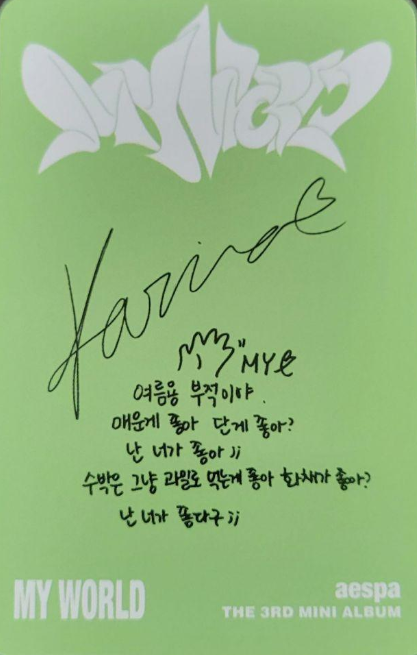 MY WORLD
Karina
"MY
여름용 부적이야.
매운게 좋아 단게 좋아?
난 너가 좋아 ;;
수박은 그냥 과일로 먹는게 좋아 화채가 좋아?
난 너가 좋다구 ;;
MY WORLD
aespa
THE 3RD MINI ALBUM